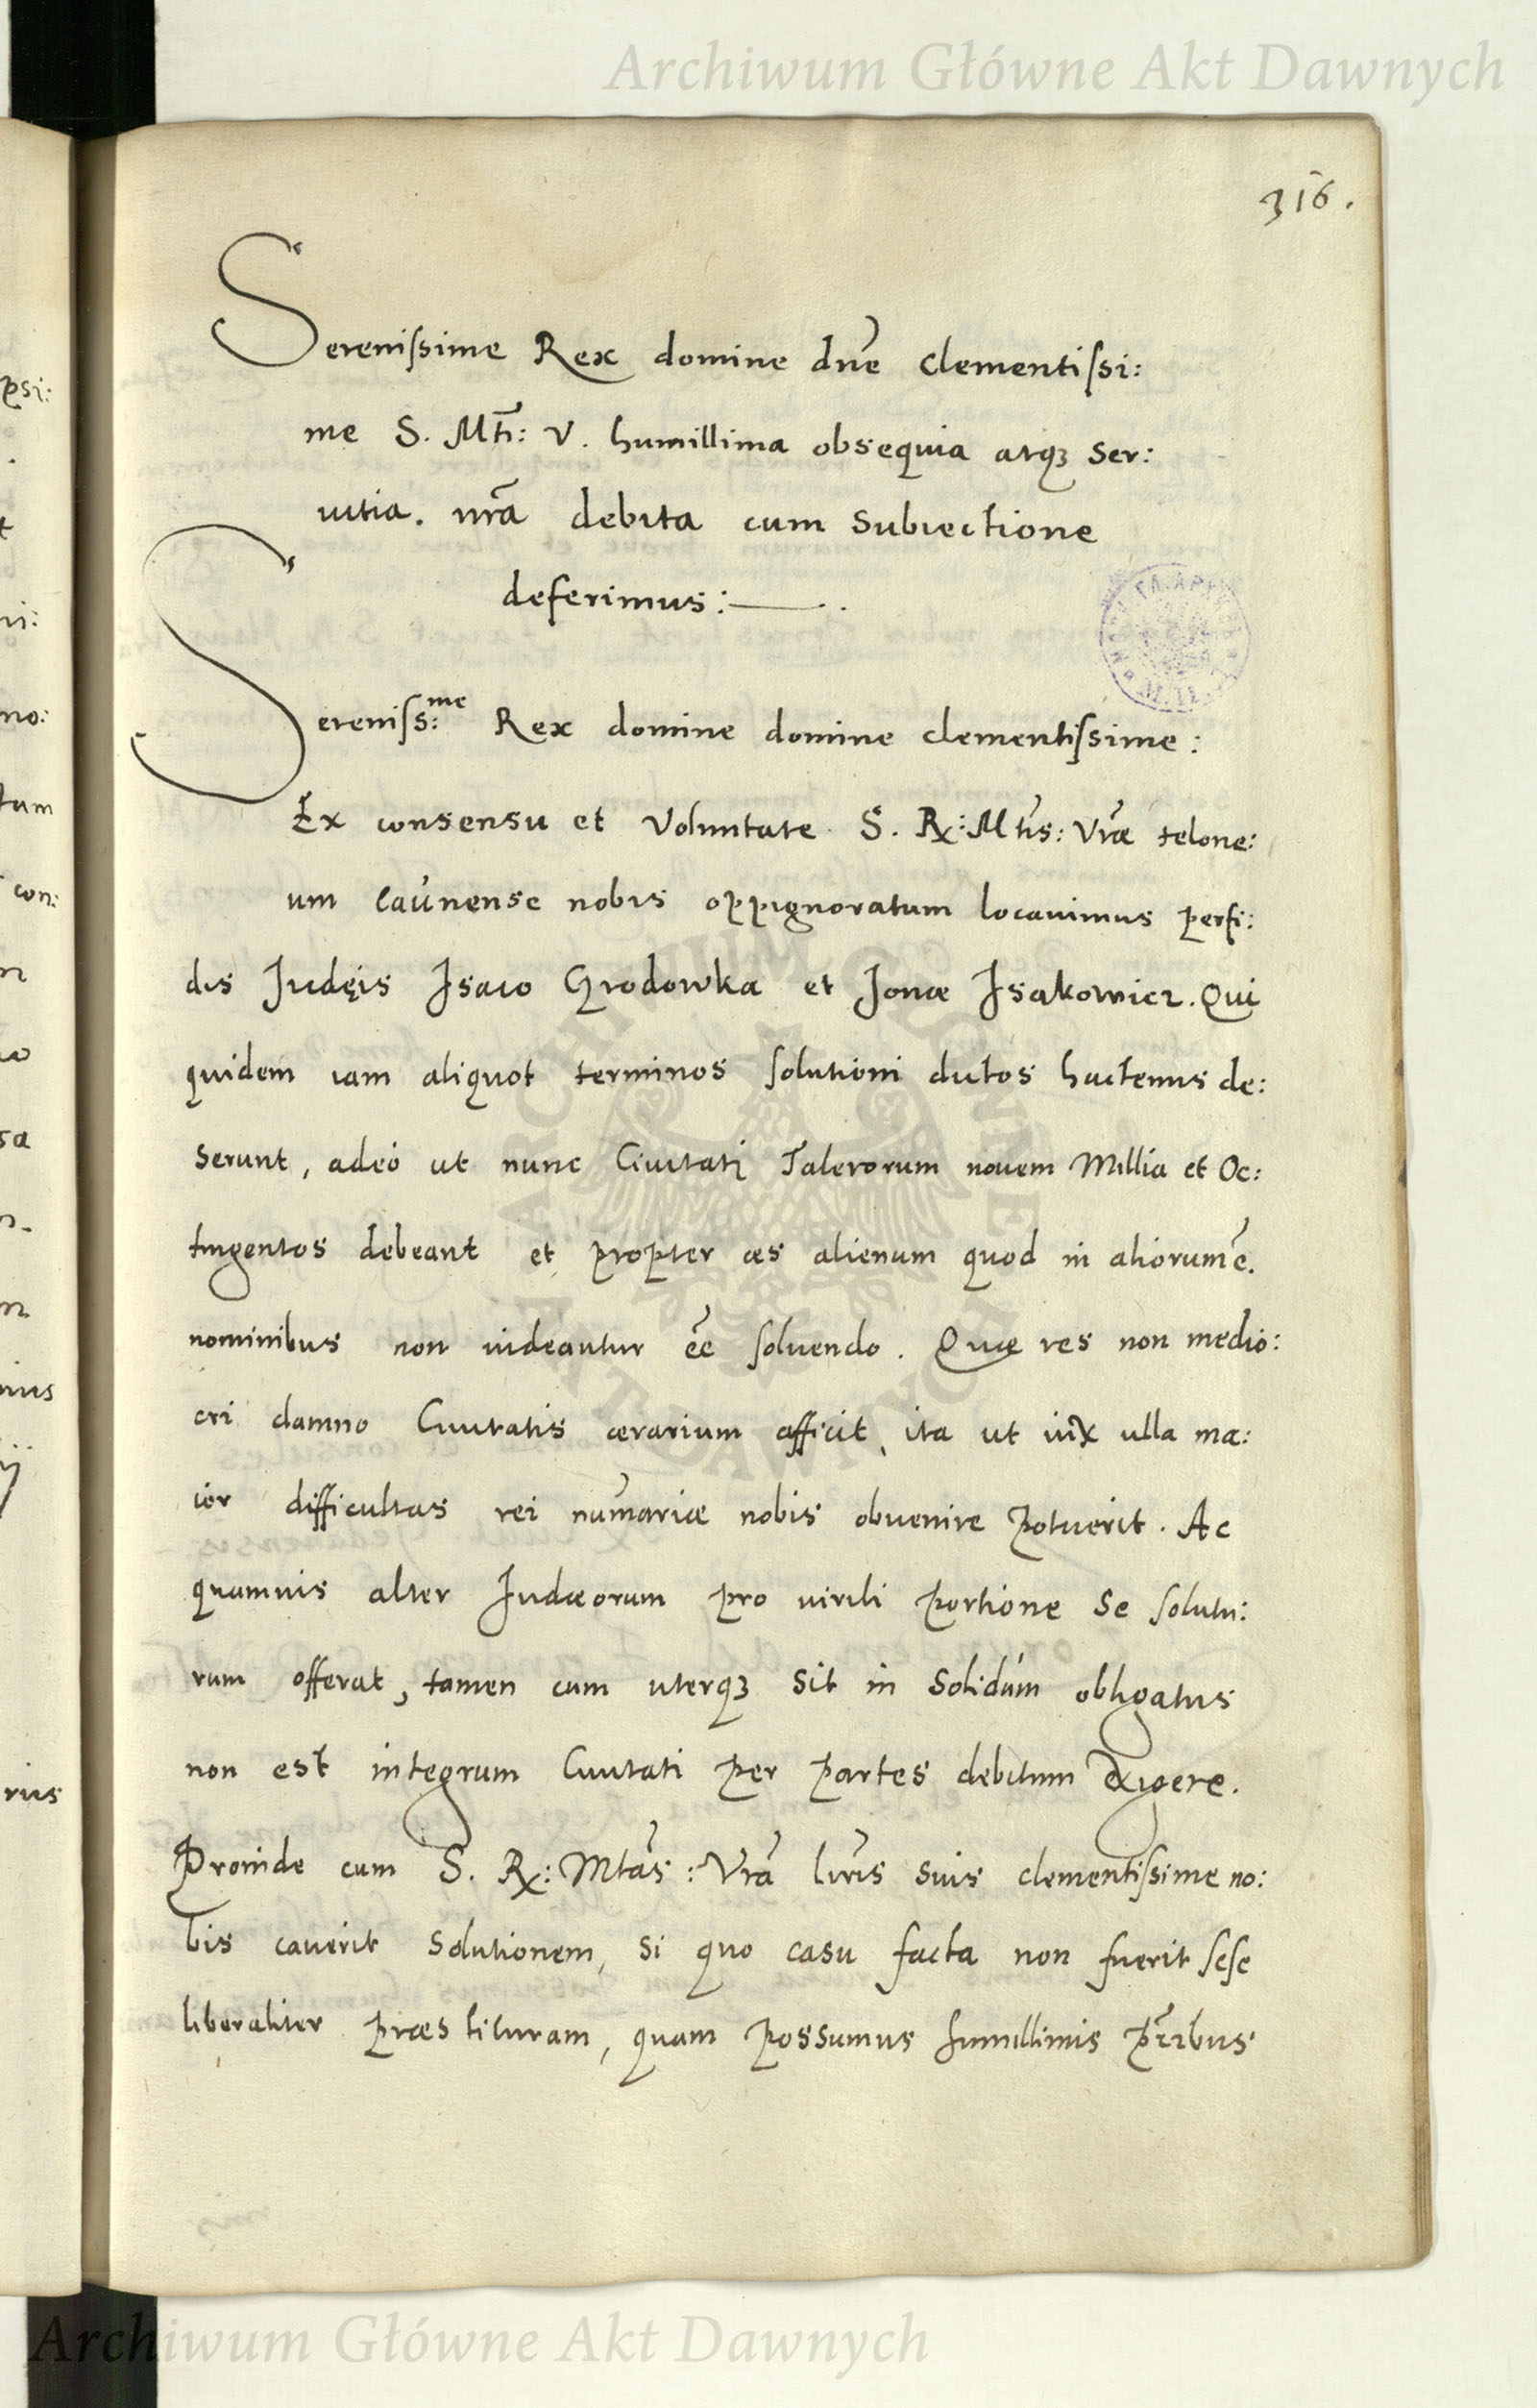 Archiwum Główne Akt Dawnych
316.
Sereniſsime Rex domine dn̄e Clementiſsi:
me S. Mti̅: V. humillima obsequia atqꝫ Ser:
uitia. nr̄a debita cum Subiectione
deferimus:
Sereniſs:me Rex domine domine clementiſsime:
Ex consensu et Voluntate S. R: Mti̅s: Vr̄æ telone:
um Caũnense nobis oppignoratum locauimus perfi:
dis Judęis Isaco Grodowka et Jonæ Isakowicz. Qui
quidem iam aliquot terminos ſolutioni dictos hactenus de:
Serunt, adeò ut nunc Ciuitati Talerorum nouem Millia et Oc:
tingentos debeant et propter æs alienum quod in aliorum ē.
nominibus non uideantur ēe ſoluendo. Quæ res non medio:
cri damno Ciuitatis ærarium afficit, ita ut uix ulla ma:
ior difficultas rei num̄ariæ nobis obuenire potuerit. Ac
quamuis alter Judæorum pro uirili portione Se ſolutu:
rum offerat, tamen cum uterqꝫ Sit in Solidũm obligatus
non est integrum Ciuitati per partes debitum exigere.
Proinde cum S. R: Mtās: Vr̄a lr̄is Suis clementiſsime no:
bis cauerit Solutionem, Si quo casu facta non fuerit ſeſe
liberaliter præstituram, quam possumus humillimis pr̄cibus
ARCHIWUM GŁÓWNE AKT DAWNYCH
Archiwum Główne Akt Dawnych